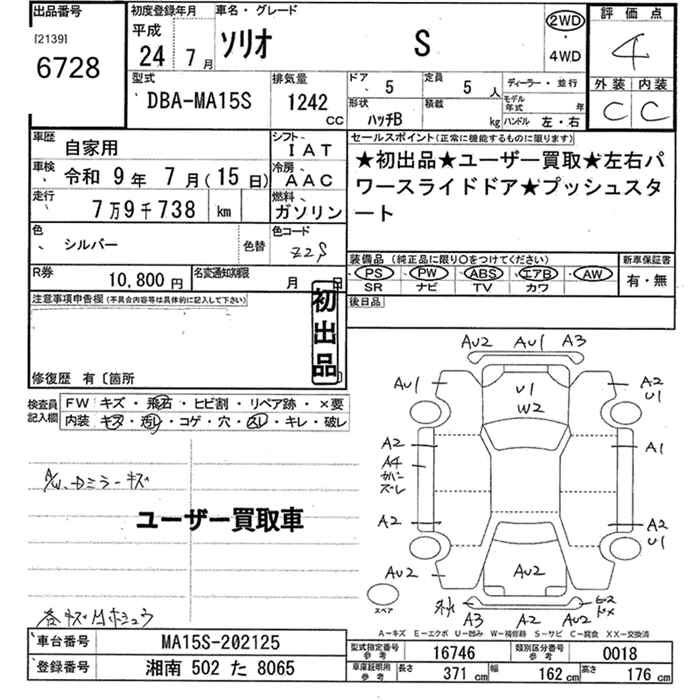 出品番号
[2139]
6728
初度登録年月
平成
24 7月
車名・グレード
ソリオ S
2WD
・
4WD
評価点
4
外装 内装
C C
型式
DBA-MA15S
排気量
1242
CC
ドア 5
定員 5人
形状 ハッチB
積載 kg
ディーラー・並行
モデル年式 年
ハンドル 左・右
車歴 自家用
車検 令和 9年 7月(15日)
走行 7万9千738 km
シフト IAT
冷房 AAC
燃料 ガソリン
色 シルバー
色替
色コード
Z2S
R券 10,800円
名変通知期限 月 日
セールスポイント(正常に機能するものに限ります)
★初出品★ユーザー買取★左右パ
ワースライドドア★プッシュスタ
ート
装備品(純正品に限り〇をつけてください)
PS・PW・ABS・エアB・AW
SR ナビ TV カワ
新車保証書
有・無
後日品
注意事項申告欄(不具合内容等は具体的に記入して下さい)
初出品
修復歴 有〔箇所 〕
検査員
記入欄
FW キズ・飛石・ヒビ割・リペア跡・×要
内装 キズ・汚レ・コゲ・穴・スレ・キレ・破レ
A/W、Dミラーキズ
ユーザー買取車
AU2 AU1 A3
AU1 U1 W2 A2 U1
A2 A1
A4
カバー
ズレ
A2 A2 U1
AU2 AU2
スペア
A3 A2 AU2
A-キズ E-エクボ U-凹み W-補修跡 S-サビ C-腐食 XX-交換済
車台番号 MA15S-202125
登録番号 湘南 502 た 8065
型式指定番号 参考 16746
類別区分番号 参考 0018
車庫証明用 参考 長さ 371 cm 幅 162 cm 高さ 176 cm